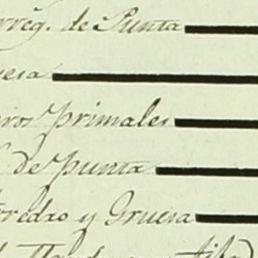 rreg. de Punta
uesa
ros primales
de punta
rredro y Gruesa